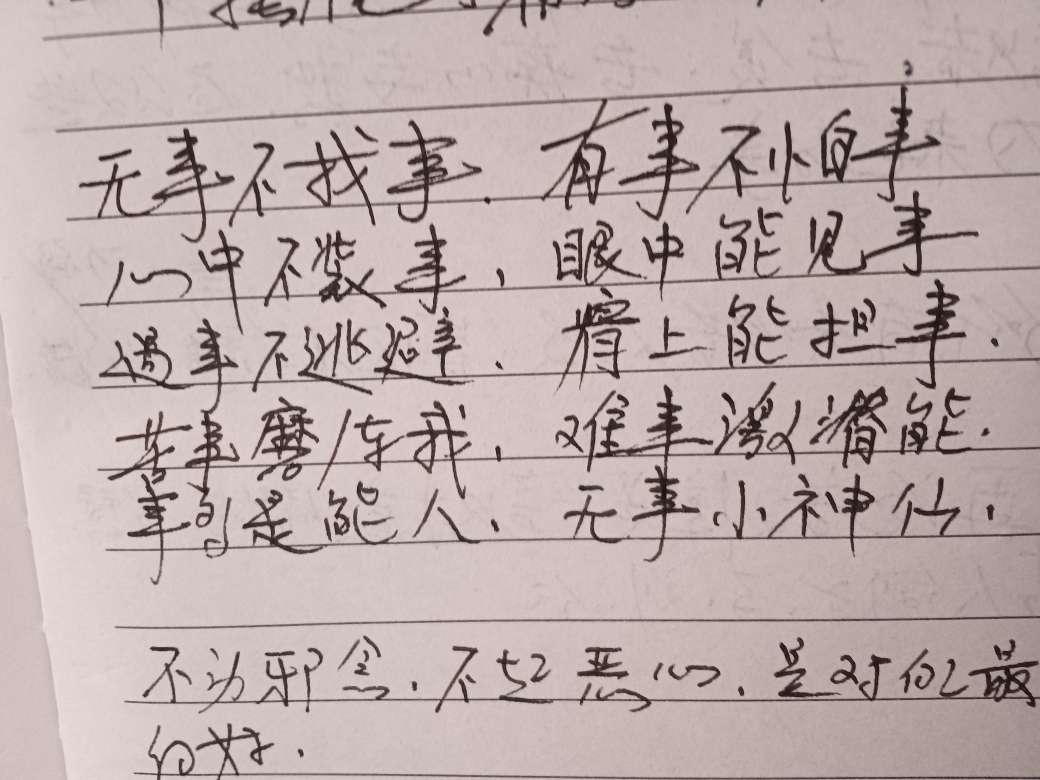 无事不找事.有事不小自事
心中不装事,眼中能见事
遇事不逃避事.膀上能担事.
苦事磨炼我,难事激潜能.
事多是能人,无事小神仙,
不动邪念.不起恶心.是对你最
的好.